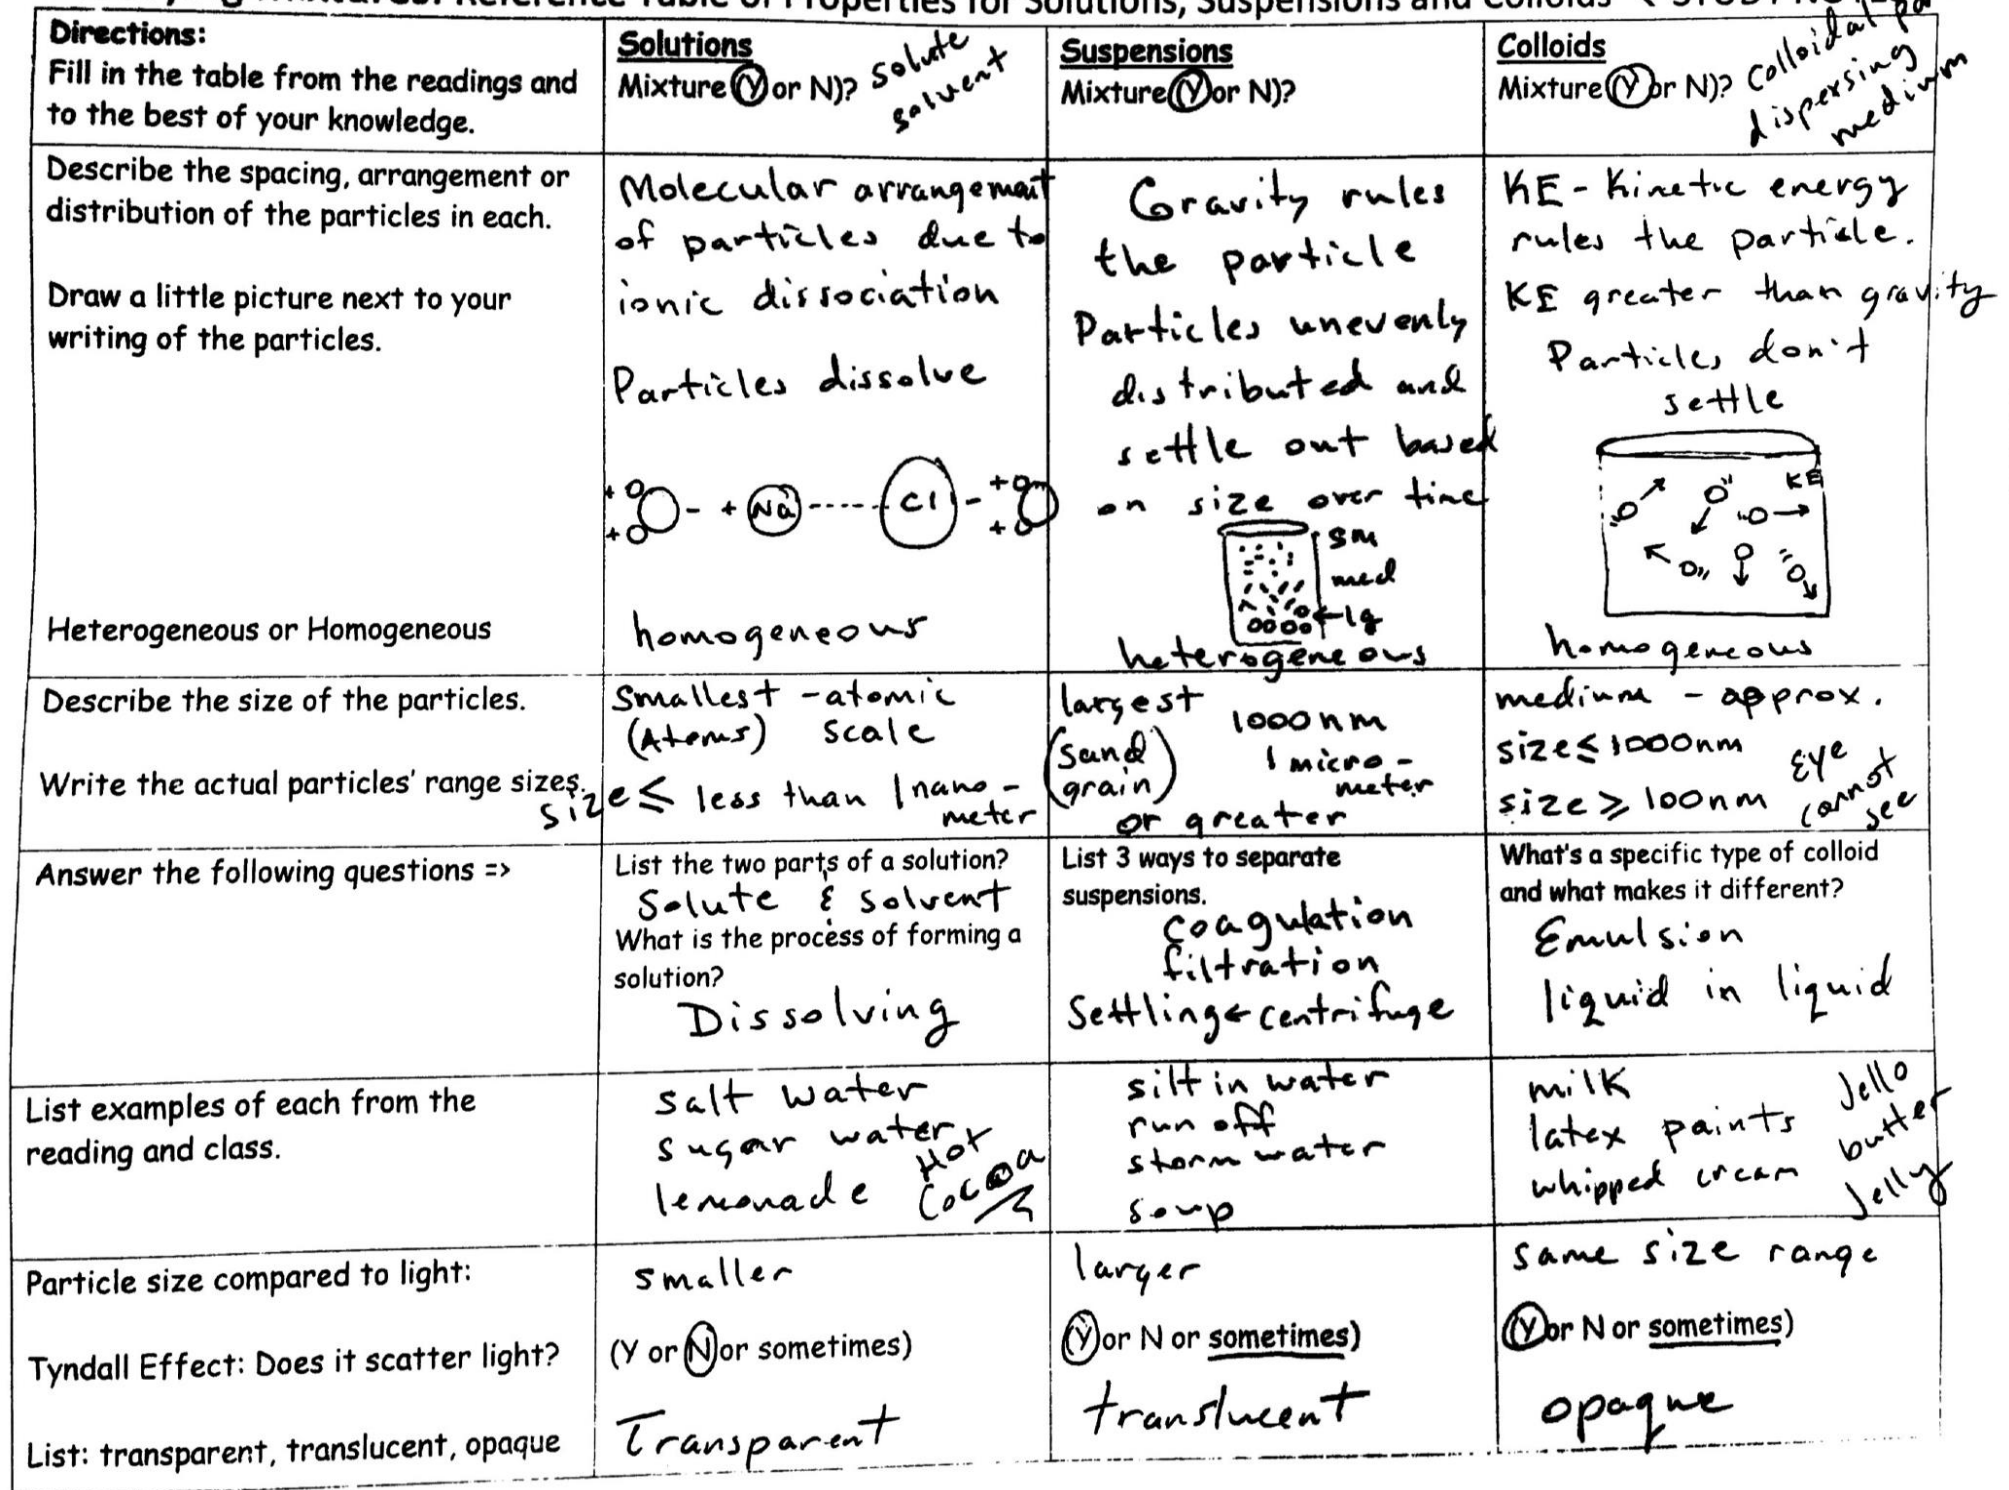 Reference Table of Properties for Solutions, Suspensions and Colloids
Directions:
Fill in the table from the readings and
to the best of your knowledge.
Solutions
Mixture (Y or N)? solute
solvent
Suspensions
Mixture (Y or N)?
Colloids
Mixture (Y or N)? colloidal
dispersing
medium
Describe the spacing, arrangement or
distribution of the particles in each.
Draw a little picture next to your
writing of the particles.
Heterogeneous or Homogeneous
Molecular arrangement
of particles due to
ionic dissociation
Particles dissolve
+ - + Na ----- Cl - +
+ +
homogeneous
Gravity rules
the particle
Particles unevenly
distributed and
settle out based
on size over time
sm
med
lg
heterogeneous
KE - Kinetic energy
rules the particle.
KE greater than gravity
Particles don't
settle
KE
homogeneous
Describe the size of the particles.
Write the actual particles' range sizes.
smallest - atomic
(Atoms) scale
size ≤ less than 1 nano-
meter
largest
(sand
grain)
1000 nm
1 micro-
meter
or greater
medium - approx.
size ≤ 1000nm
size ≥ 100nm
Eye
cannot
see
Answer the following questions =>
List the two parts of a solution?
Solute & solvent
What is the process of forming a
solution?
Dissolving
List 3 ways to separate
suspensions.
coagulation
filtration
Settling ← centrifuge
What's a specific type of colloid
and what makes it different?
Emulsion
liquid in liquid
List examples of each from the
reading and class.
salt water
sugar water
lemonade
Hot
Cocoa
silt in water
run off
storm water
soup
milk
latex paints
whipped cream
Jello
butter
Jelly
Particle size compared to light:
smaller
larger
same size range
Tyndall Effect: Does it scatter light?
(Y or N or sometimes)
(Y or N or sometimes)
(Y or N or sometimes)
List: transparent, translucent, opaque
Transparent
translucent
opaque